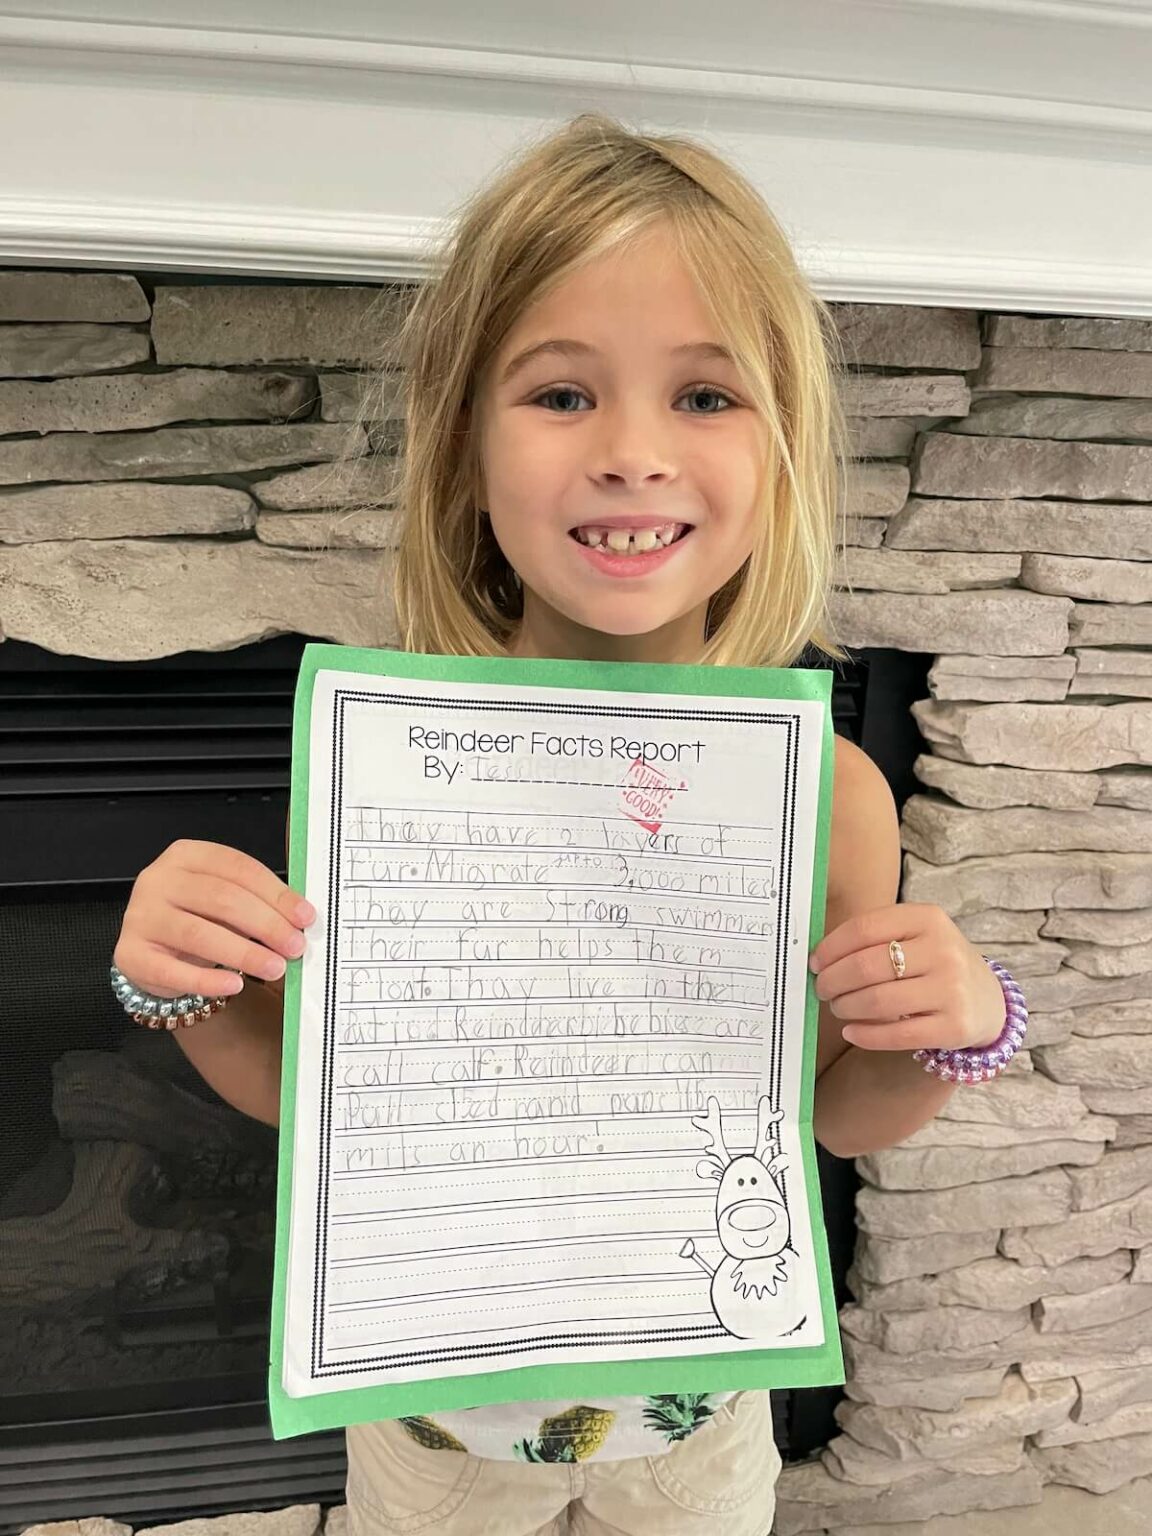 Reindeer Facts Report
By: Tess
VERY GOOD!
they have 2 layers of
fur. Migrate up to 3,000 miles.
They are strong swimmers
Their fur helps them
float. Thay live in the
are
call calf. Reindeer can
Pull
mils an hour!